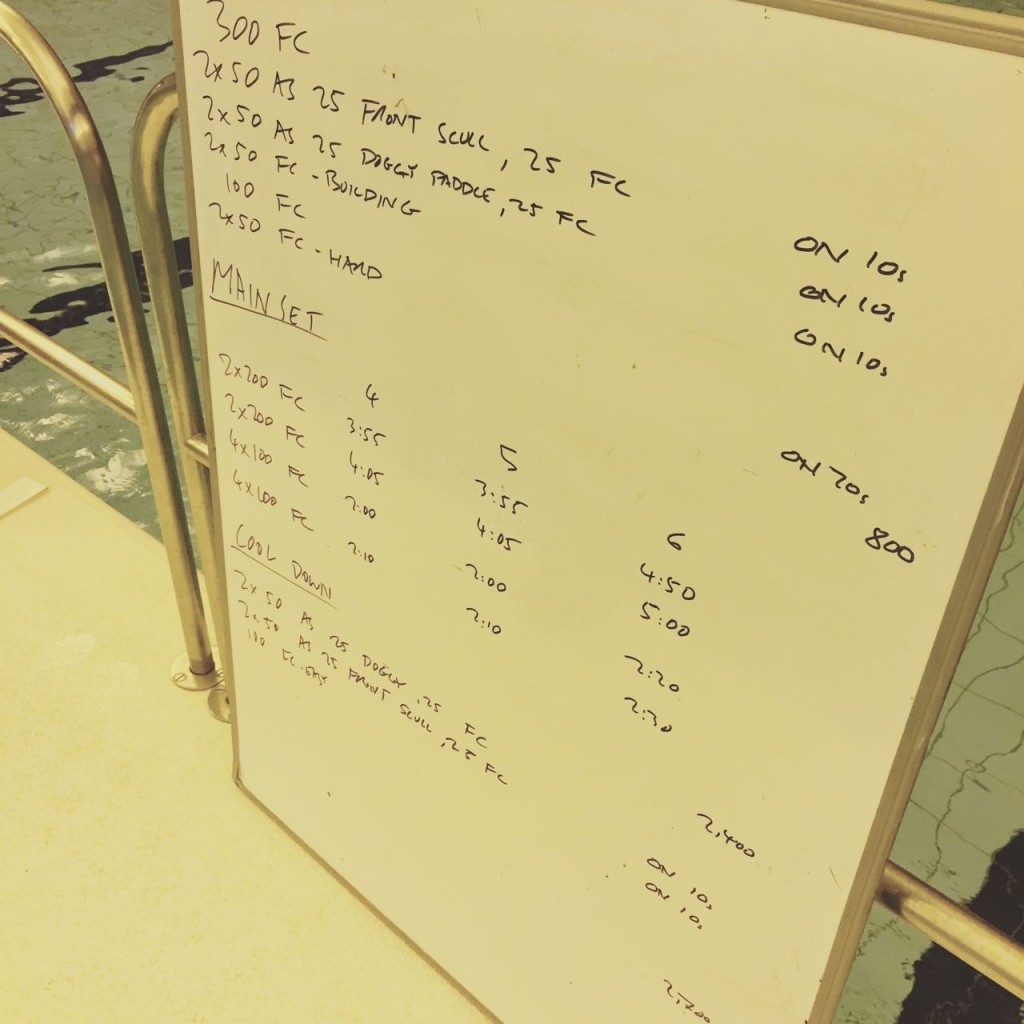 300 FC
2x50 AS 25 FRONT SCULL, 25 FC ON 10s
2x50 AS 25 DOGGY PADDLE, 25 FC ON 10s
2x50 FC - BUILDING ON 10s
100 FC
2x50 FC - HARD ON 20s
800
MAIN SET
4 5 6
2x200 FC 3:55 3:55 4:50
2x200 FC 4:05 4:05 5:00
4x100 FC 2:00 2:00 2:20
4x100 FC 2:10 2:10 2:30
2,400
COOL DOWN
2x50 AS 25 DOGGY, 25 FC ON 10s
2x50 AS 25 FRONT SCULL, 25 FC ON 10s
100 FC - EASY
2,700